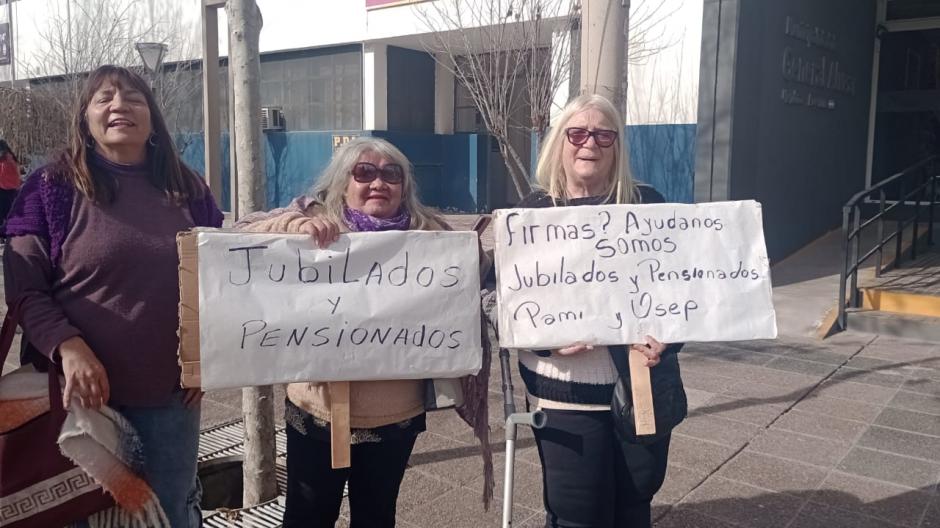 JUBILADOS
Y
PENSIONADOS
Firmas? Ayudanos
Somos
Jubilados y Pensionados
Pami y Usep
General Alvear